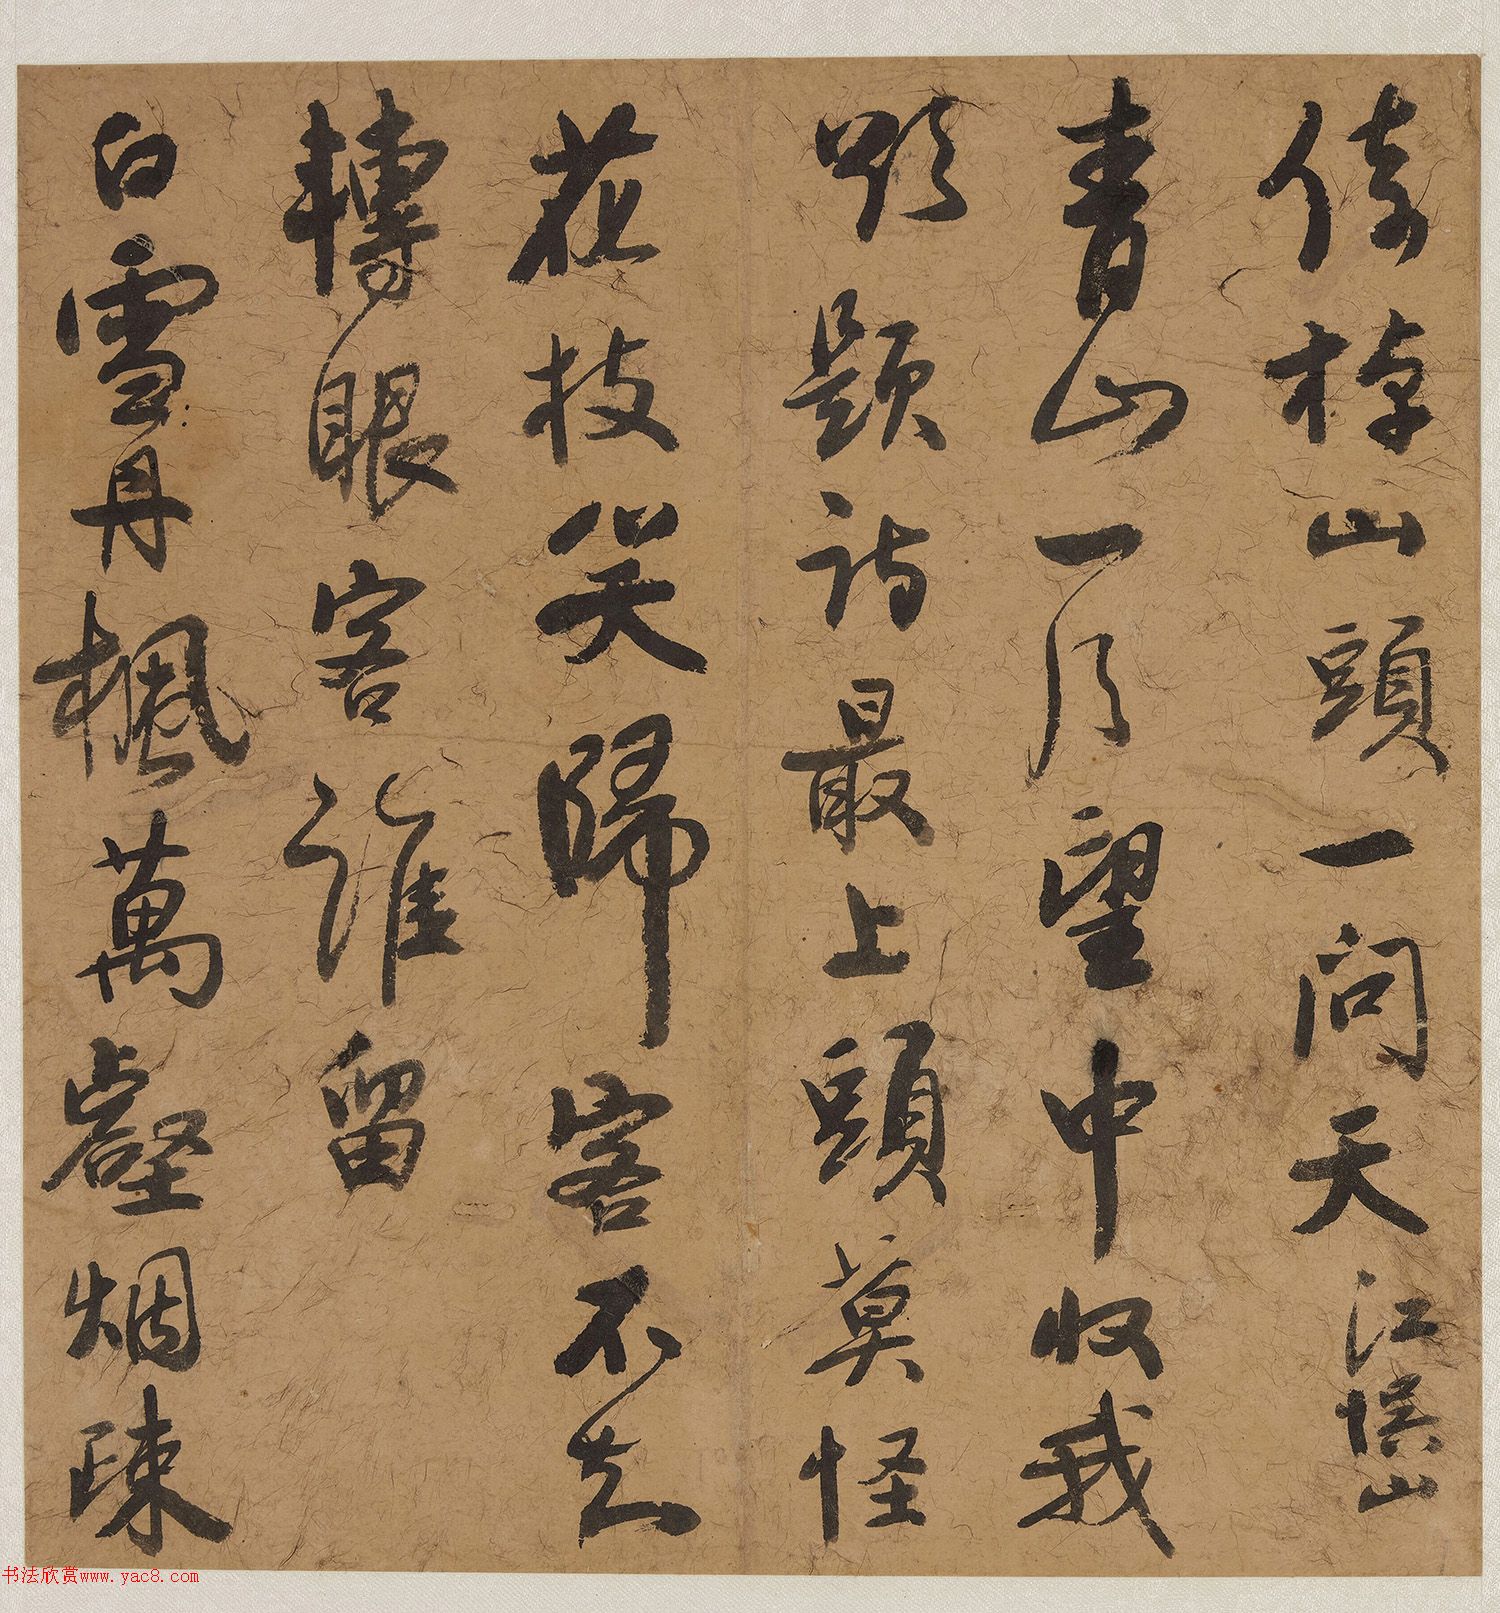 倚棹山頭一問天 江山
青山一月望中收我
欲題詩最上頭莫怪
花枝笑歸客不去
轉眼客誰留
白雪丹楓萬壑烟疎
书法欣赏www.yac8.com